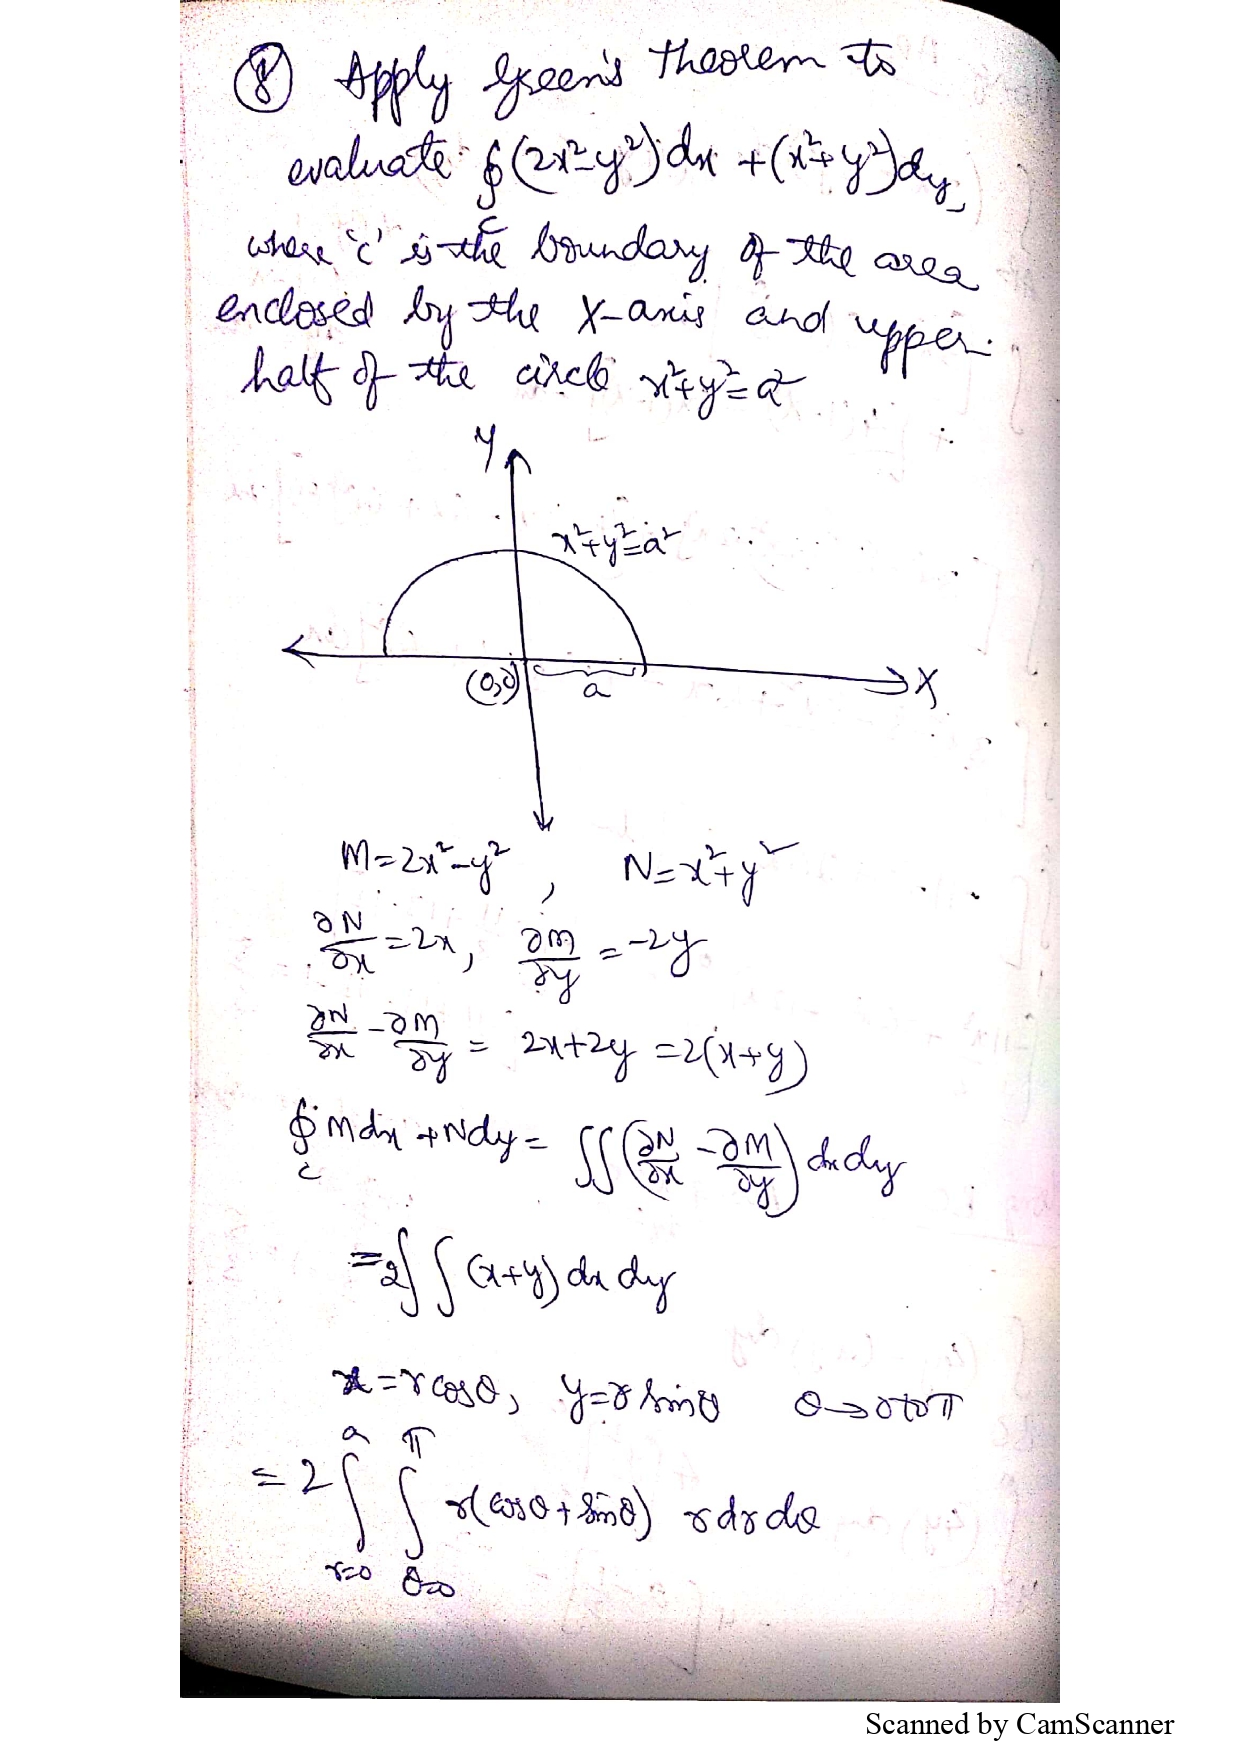 ⑧ Apply Green's theorem to
evaluate ∮_C (2x²-y²)dx + (x²+y²)dy,
where 'c' is the boundary of the area
enclosed by the X-axis and upper
half of the circle x²+y²=a²
Y
x²+y²=a²
(0,0) a X
M=2x²-y² , N=x²+y²
∂N/∂x = 2x, ∂M/∂y = -2y
∂N/∂x - ∂M/∂y = 2x+2y = 2(x+y)
∮_c Mdx + Ndy = ∬(∂N/∂x - ∂M/∂y) dxdy
= 2∫∫(x+y) dx dy
x = r cosθ, y = r sinθ θ→0 to π
= 2 ∫_{r=0}^{a} ∫_{θ=0}^{π} r(cosθ + sinθ) r dr dθ
Scanned by CamScanner